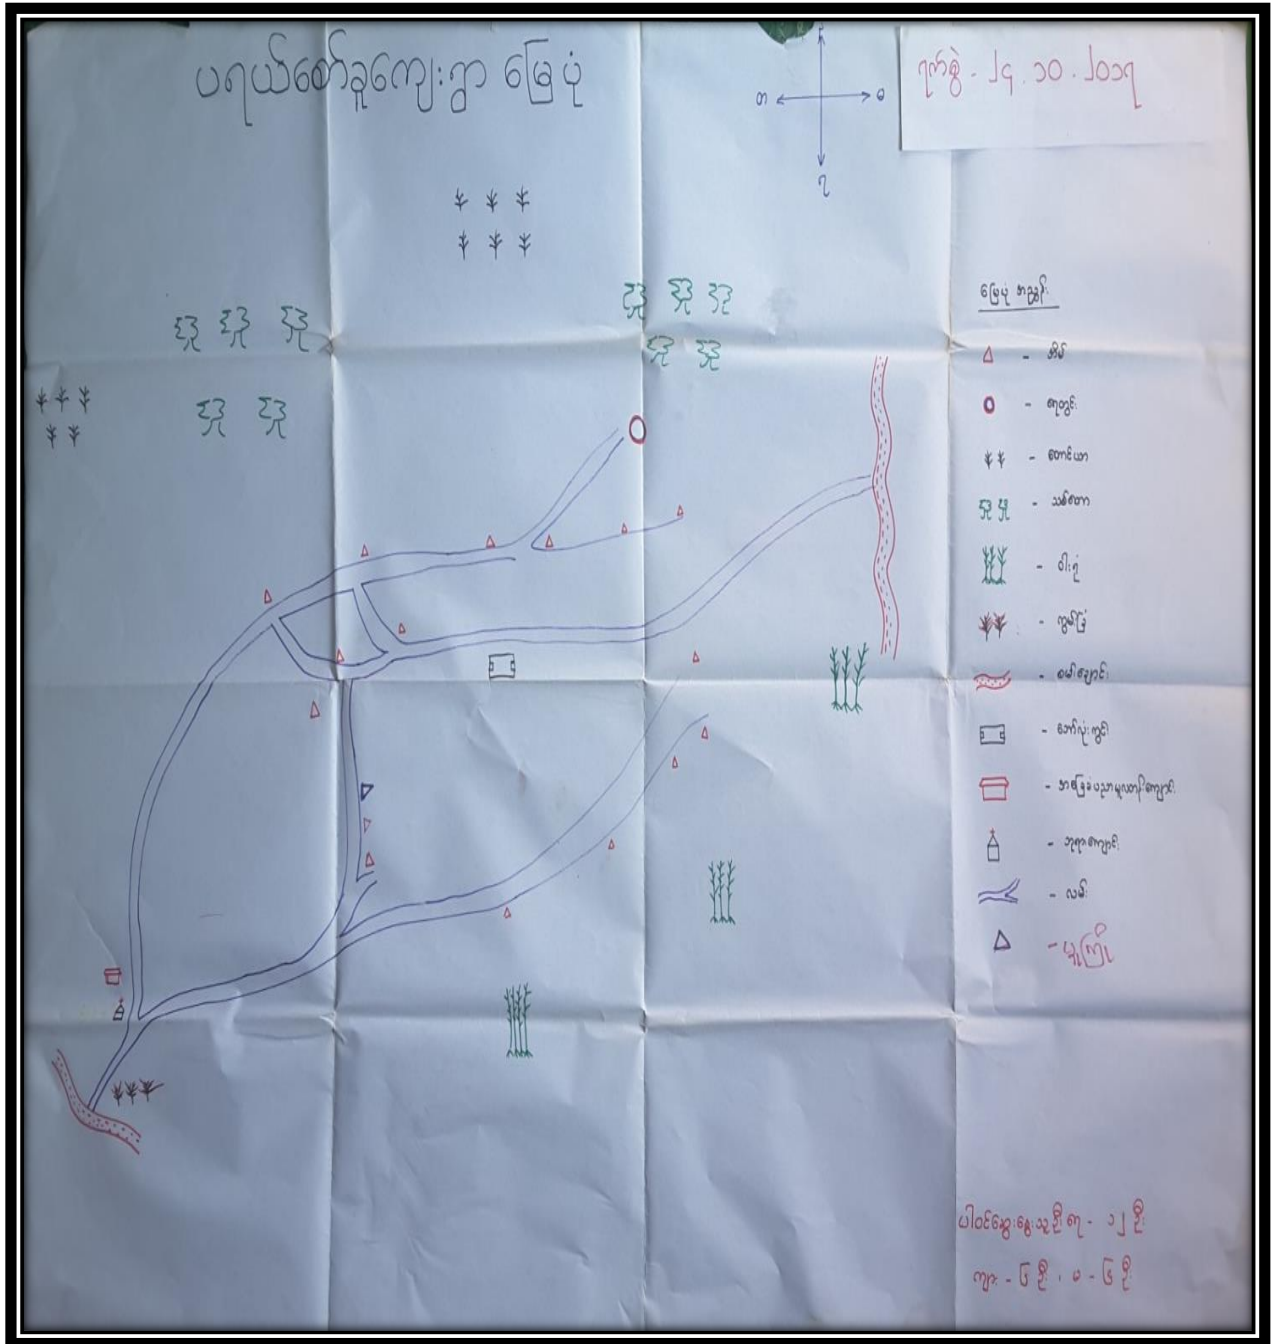 ပရယ်စော်ခူကျေးရွာ မြေပုံ
ရက်စွဲ - ၂၄.၁၀.၂၀၁၇
တ
မ
ၐ
မြေပုံ အညွှန်း
- အိမ်
- ရေတွင်း
- တောင်ယာ
- သစ်တော
- ဝါးရုံ
- ကွမ်းခြံ
- စမ်းချောင်း
- ဘော်လုံးကွင်း
- အခြေခံပညာမူလတန်းကျောင်း
- ဘုရားကျောင်း
- လမ်း
- သူကြီး
ပါဝင်ဆွေးနွေးသူဦးရေ - ၁၂ ဦး
ကျား - ၆ ဦး ၊ မ - ၆ ဦး